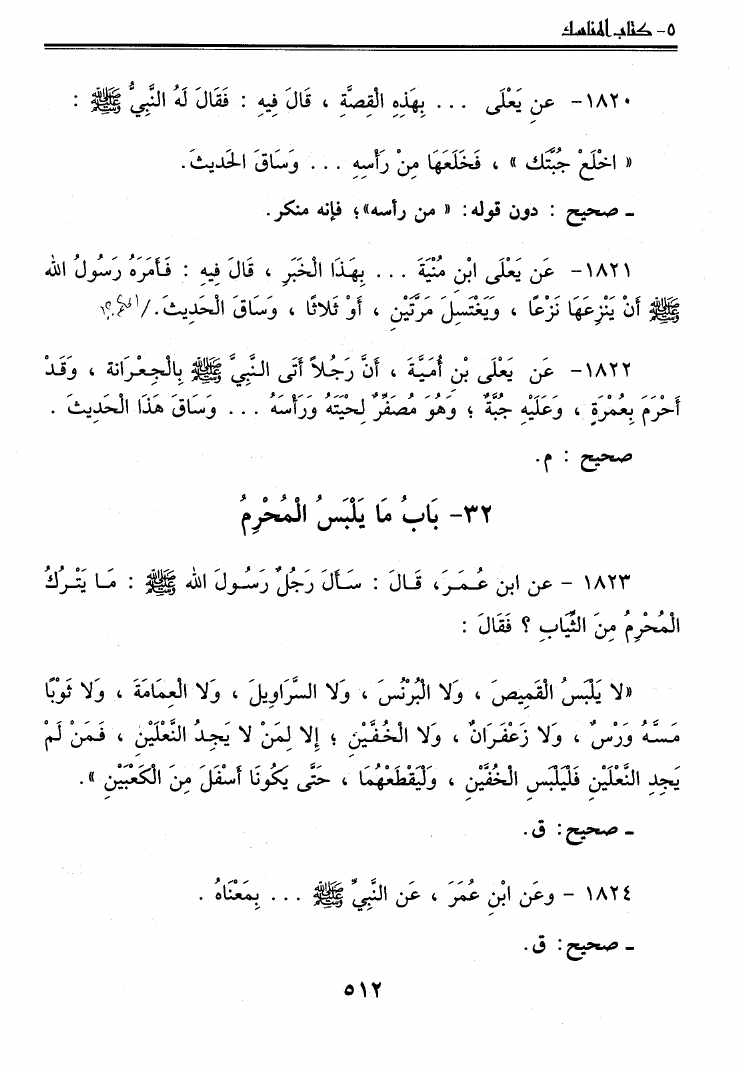 ٥- كتاب المناسك
١٨٢٠- عن يَعْلَى ... بِهَذِهِ الْقِصَّةِ ، قَالَ فِيهِ : فَقَالَ لَهُ النَّبِيُّ ﷺ :
« اخْلَعْ جُبَّتَك » ، فَخَلَعَهَا مِنْ رَأْسِهِ ... وَسَاقَ الحَديثَ.
ـ صحيح : دون قوله: « من رأسه»؛ فإنه منكر.
١٨٢١- عَن يَعْلَى ابنِ مُنْيَةَ ... بِهَذَا الْخَبَرِ ، قَالَ فِيهِ : فَأَمَرَهُ رَسُولُ الله
ﷺ أَنْ يَنْزِعَهَا نَزْعًا ، وَيَغْتَسِلَ مَرَّتَيْنِ ، أَوْ ثَلاثًا ، وَسَاقَ الْحَدِيثَ.
١٨٢٢- عَن يَعْلَى بْنِ أُمَيَّةَ ، أَنَّ رَجُلاً أَتَى النَّبِيَّ ﷺ بِالْجِعْرَانة ، وَقَدْ
أَحْرَمَ بِعُمْرَةٍ ، وَعَلَيْهِ جُبَّةٌ ؛ وَهُوَ مُصَفِّرٌ لِحْيَتَهُ وَرَأْسَهُ ... وَسَاقَ هَذَا الْحَدِيثَ .
صحيح : م.
٣٢- بَابُ مَا يَلْبَسُ الْمُحْرِمُ
١٨٢٣ - عن ابن عُمَرَ، قَالَ : سَأَلَ رَجُلٌ رَسُولَ الله ﷺ : مَا يَتْرُكُ
الْمُحْرِمُ مِنَ الثِّيَابِ ؟ فَقَالَ :
«لا يَلْبَسُ الْقَمِيصَ ، وَلا الْبُرْنُسَ ، وَلا السَّرَاوِيلَ ، وَلا الْعِمَامَةَ ، وَلا ثَوْبًا
مَسَّهُ وَرْسٌ ، وَلا زَعْفَرَانٌ ، وَلا الْخُفَّيْنِ ؛ إِلا لِمَنْ لا يَجِدُ النَّعْلَيْنِ ، فَمَنْ لَمْ
يَجِدِ النَّعْلَيْنِ فَلْيَلْبَسِ الْخُفَّيْنِ ، وَلْيَقْطَعْهُمَا ، حَتَّى يَكُونَا أَسْفَلَ مِنَ الْكَعْبَيْنِ ».
ـ صحيح: ق.
١٨٢٤ - وعَن ابْنِ عُمَرَ ، عَن النَّبِيِّ ﷺ ... بِمَعْنَاهُ .
ـ صحيح: ق.
٥١٢